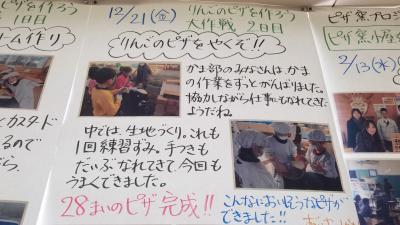 ピザを作ろう
1日目
ーム作り
カスタード
るので
がら、
12/21(金) りんごのピザを作ろう
大作戦 9日目
りんごのピザをやくぞ!!
かま部のみなさんは かま
の作業をずっとがんばりました。
協力しながら仕事にもなれてきた
ようだね。
中では、生地づくり。これも
1回練習ずみ。手つきも
だいぶなれてきて、今回も
うまくできました。
28まいのピザ 完成!!
こんなにおいしそうなピザが
できました!!
ピザ窯プロジ
ピザ窯小屋
2/13(水)